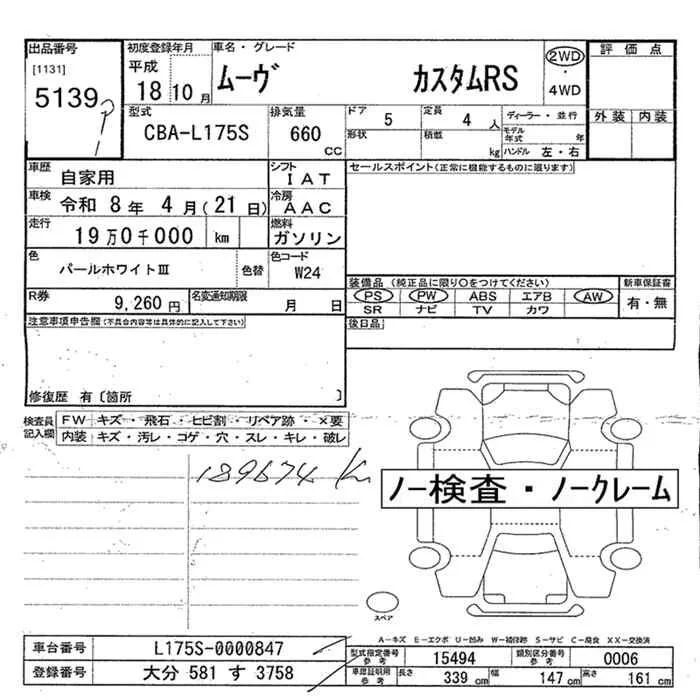 出品番号 初度登録年月 車名・グレード 2WD 評価点
[1131] 平成 ムーヴ カスタムRS ・
5139 18 10 月 4WD
型式 排気量 ドア 5 定員 4 人 ディーラー・並行 外装 内装
CBA-L175S 660 cc 形状 積載 kg モデル年式 年
ハンドル 左・右
車歴 自家用 シフト IAT セールスポイント(正常に機能するものに限ります)
車検 令和 8 年 4 月(21 日) 冷房 AAC
走行 19万0千000 km 燃料 ガソリン
色 パールホワイトⅢ 色替 色コード W24
装備品(純正品に限り○をつけてください) 新車保証書
R券 9,260 円 名変通知期限 月 日 PS PW ABS エアB AW 有・無
SR ナビ TV カワ
注意事項申告欄(不具合内容等は具体的に記入して下さい) 後日品
修復歴 有〔箇所 〕
検査員記入欄 FW キズ・飛石・ヒビ割・リペア跡・×要
内装 キズ・汚レ・コゲ・穴・スレ・キレ・破レ
189674 Km
ノー検査・ノークレーム
スペア
A-キズ E-エクボ U-凹み W-補修跡 S-サビ C-腐食 XX-交換済
車台番号 L175S-0000847 型式指定番号 参考 15494 類別区分番号 参考 0006
登録番号 大分 581 す 3758 車庫証明用 参考 長さ 339 cm 幅 147 cm 高さ 161 cm